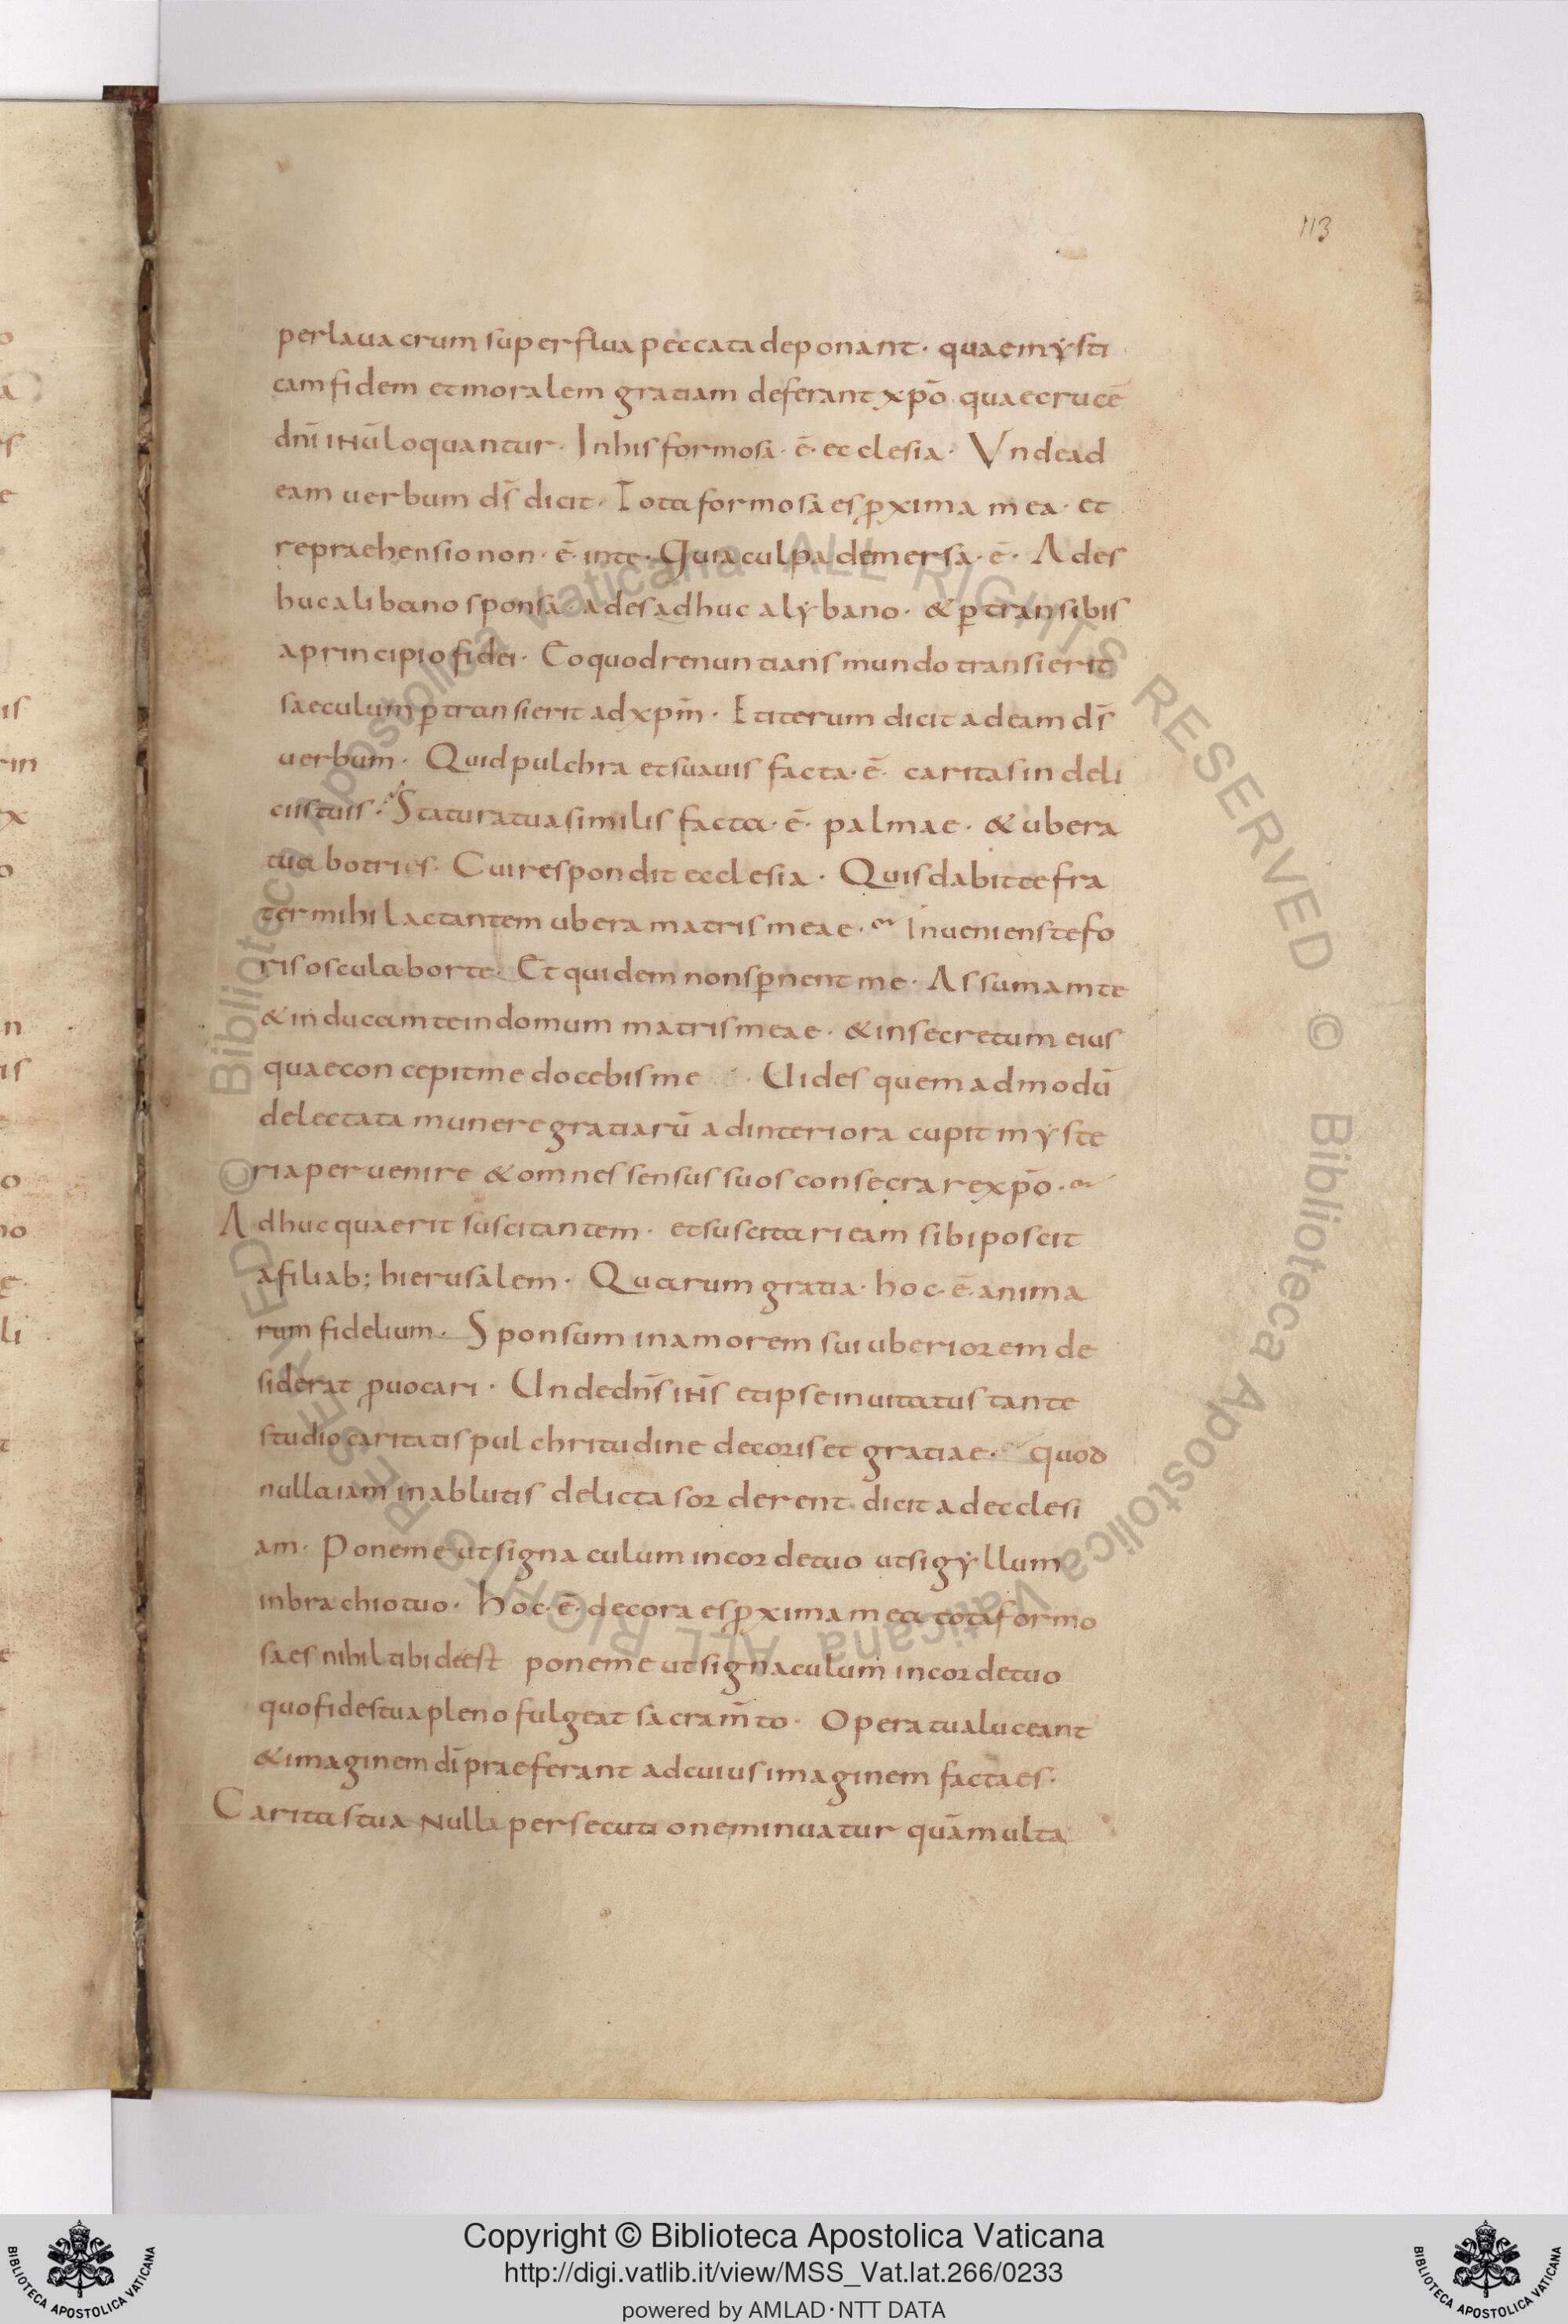 113
perlauacrum superflua peccata deponant· quae mysti
cam fidem et moralem gratiam deferant xp̄o quae crucē
dn̄i ihū loquantur· In his formosa· ē· ecclesia· Vnde ad
eam uerbum dī dicit· Tota formosa es ꝓxima mea· et
repraehensio non· ē· in te· Quia culpa demersa· ē· Ades
huc a libano sponsa· ades adhuc a lybano· & ꝑtransibis
a principio fidei· Eo quod renuntians mundo transierit
saeculum ꝑtransierit ad xp̄m· Et iterum dicit ad eam dī
uerbum· Quid pulchra et suauis facta· ē· caritas in deli
ciis tuis· Statura tua similis facta· ē· palmae· & ubera
tua botries· Cui respondit ecclesia· Quis dabit te fra
ter mihi lactantem ubera matris meae· Inueniens te fo
ris osculabor te· Et quidem non sꝑnent me· Assumam te
& inducam te in domum matris meae· & in secretum eius
quae concepit me docebis me · Uides quemadmodū
delectata munere gratiarū ad interiora cupit myste
ria peruenire & omnes sensus suos consecrare xp̄o·
Adhuc quaerit suscitantem· et suscitari eam sibi poscit
a filiab; hierusalem· Quarum gratia· hoc· ē· anima
rum fidelium· Sponsum in amorem sui uberiorem de
siderat ꝓuocari· Unde dn̄s ihs̄ et ipse inuitatus tante
studio caritatis pulchritudine decoris et gratiae· quod
nulla iam in ablutis delicta sorderent· dicit ad ecclesi
am· Pone me ut signaculum in corde tuo ut sigyllum
in brachio tuo· hoc· ē· decora es ꝓxima mea tota formo
sa es nihil tibi deest pone me ut signaculum in corde tuo
quo fides tua pleno fulgeat sacram̄to· Opera tua luceant
& imaginem dī praeferant ad cuius imaginem facta es·
Caritas tua nulla persecutione minuatur quā multa
Copyright © Biblioteca Apostolica Vaticana
http://digi.vatlib.it/view/MSS_Vat.lat.266/0233
powered by AMLAD·NTT DATA
BIBLIOTECA APOSTOLICA VATICANA
BIBLIOTECA APOSTOLICA VATICANA
© Biblioteca Apostolica Vaticana ALL RIGHTS RESERVED
© Biblioteca Apostolica Vaticana ALL RIGHTS RESERVED